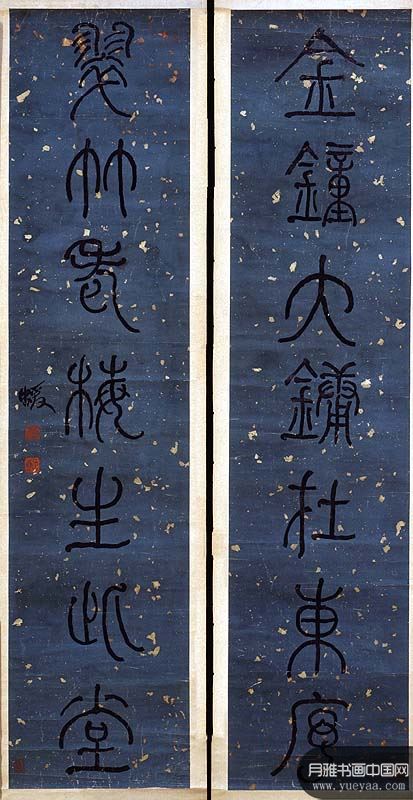 金鐘大鏞在東序
翠竹老梅生此堂
蝯叟
月雅书画中国网
www.yueyaa.com